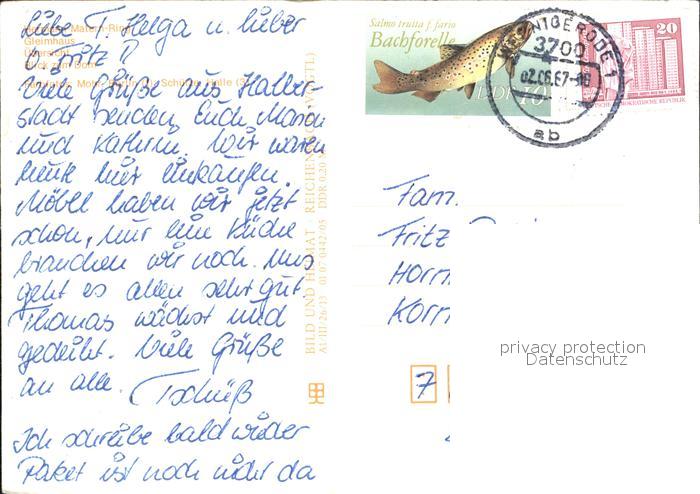 Liebe T. Helga u. lieber
Fritz!!
Viele Grüße aus Halber-
stadt senden Euch
und Kathrin. Wir waren
heute hier einkaufen.
Möbel haben wir jetzt
schon, nur eine Küche
brauchen wir noch. Uns
geht es allen sehr gut.
Thomas wächst und
gedeiht. Viele Grüße
an alle. Tschüß
Ich schreibe bald wieder
Paket ist noch nicht da
Gleimhaus
Übersicht
Blick zum Dom
BILD UND HEIMAT REICHENBACH (VOGTL)
A1/III/26/13 01 07 0442/05 DDR 0,20 M
Salmo trutta f. fario
Bachforelle
DDR 10
WERNIGERODE 1
3700
02.06.87-16
ab
20
DEUTSCHE DEMOKRATISCHE REPUBLIK
Fam.
Fritz
Horn
Korn
7
privacy protection
Datenschutz